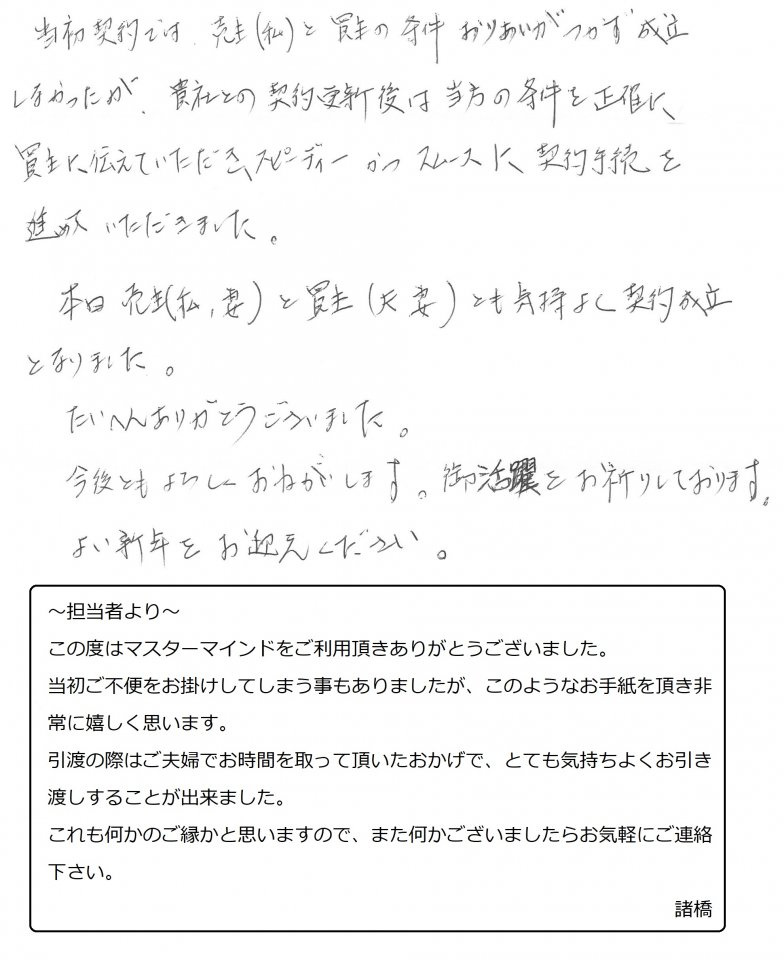 当初契約では、売主(私)と買主の条件おりあいがつかず成立
しなかったが、貴社との契約更新後は当方の条件を正確に、
買主に、伝えていただき、スピーディーかつスムースに、契約手続を
進めていただきました。
本日売主(私,妻)と買主(夫妻)とも気持よく契約成立
となりました。
たいへんありがとうございました。
今後ともよろしくおねがいします。御活躍をお祈りしております。
よい新年をお迎えください。
~担当者より~
この度はマスターマインドをご利用頂きありがとうございました。
当初ご不便をお掛けしてしまう事もありましたが、このようなお手紙を頂き非
常に嬉しく思います。
引渡の際はご夫婦でお時間を取って頂いたおかげで、とても気持ちよくお引き
渡しすることが出来ました。
これも何かのご縁かと思いますので、また何かございましたらお気軽にご連絡
下さい。
諸橋